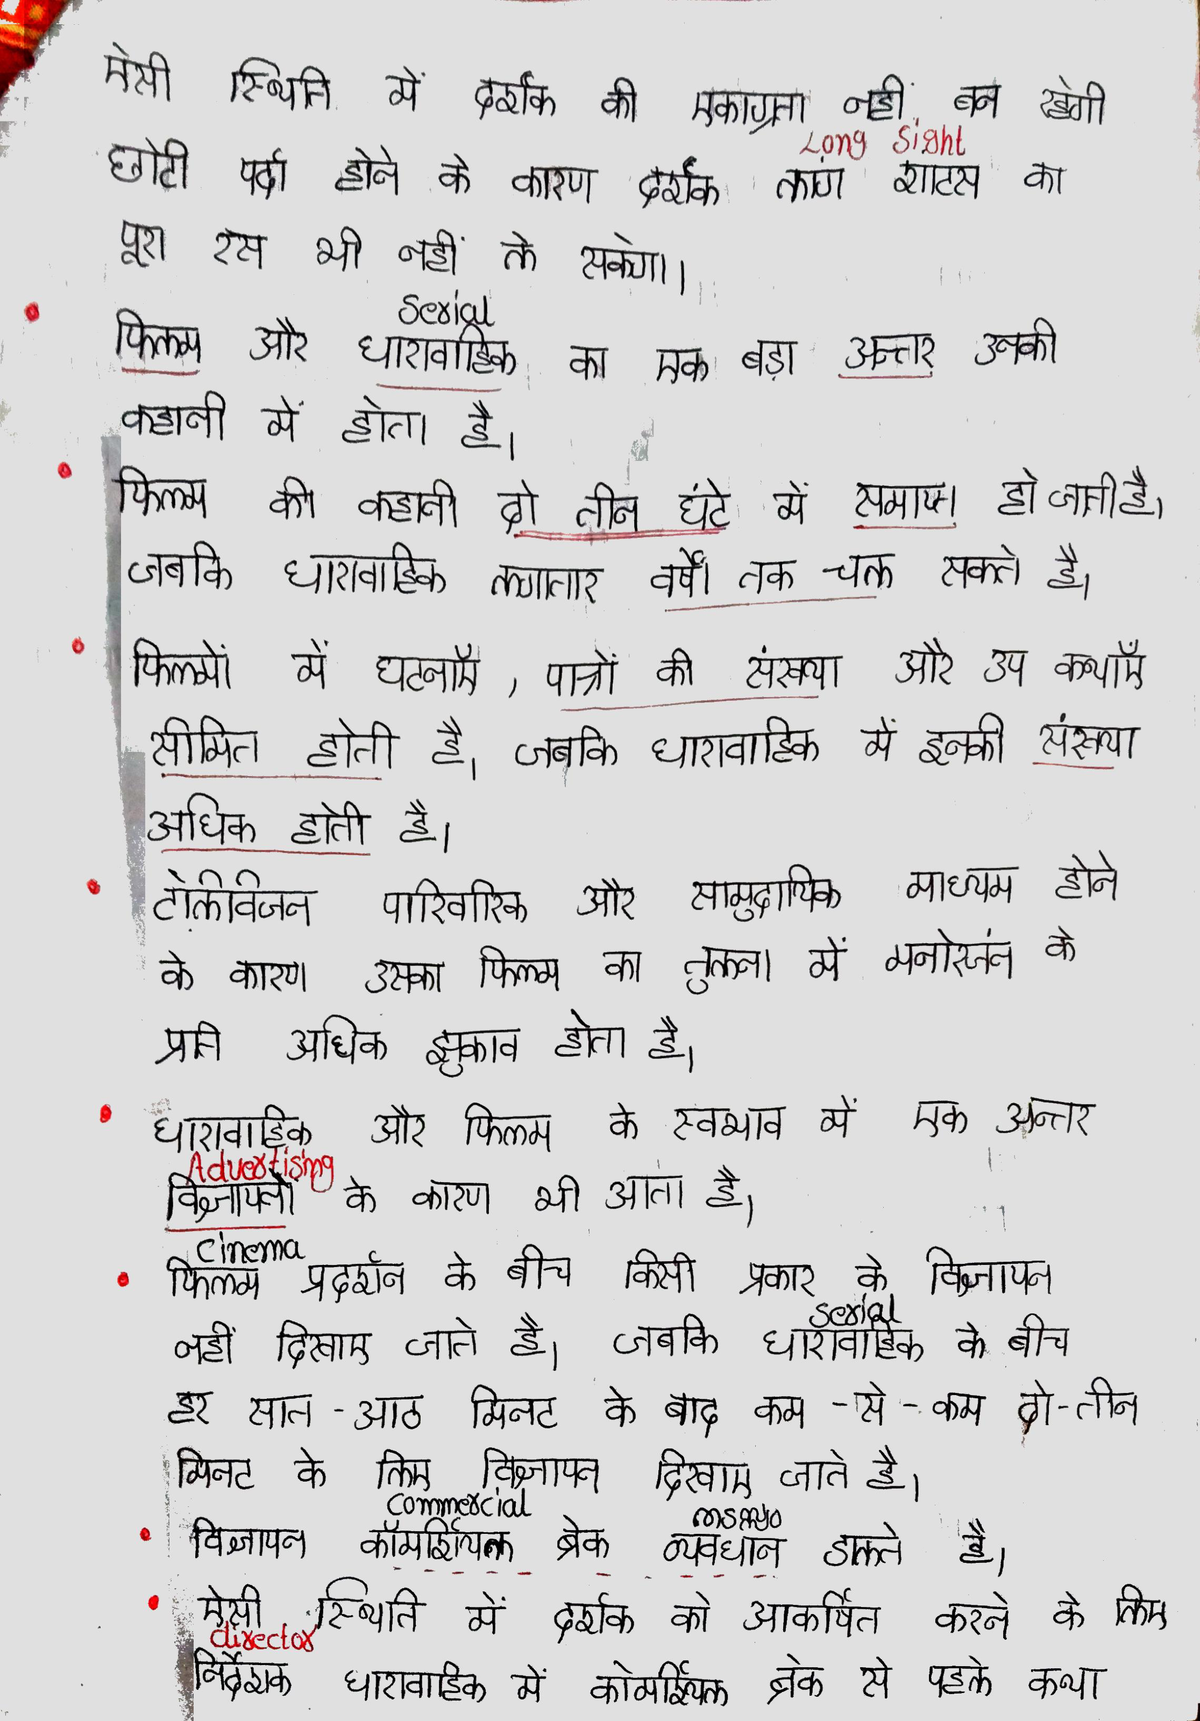 ऐसी स्थिति में दर्शक की एकाग्रता नहीं बन रहेगी
Long Sight
छोटी पर्दा होने के कारण दर्शक लांग शाटस का
पूरा रस भी नहीं ले सकेगा।
Serial
फिल्म और धारावाहिक का एक बड़ा अन्तर उनकी
कहानी में होता है।
फिल्म की कहानी दो तीन घंटे में समाप्त हो जाती है।
जबकि धारावाहिक लगातार वर्षों तक चल सकते है।
फिल्मों में घटनाएँ, पात्रों की संख्या और उप कथाएँ
सीमित होती है, जबकि धारावाहिक में इनकी संख्या
अधिक होती है।
टेलीविजन पारिवारिक और सामुदायिक माध्यम होने
के कारण उसका फिल्म का तुलना में मनोरंजन के
प्रति अधिक झुकाव होता है।
धारावाहिक और फिल्म के स्वभाव में एक अन्तर
Advertising
विज्ञापनों के कारण भी आता है।
Cinema
फिल्म प्रदर्शन के बीच किसी प्रकार के विज्ञापन
Serial
नहीं दिखाए जाते है। जबकि धारावाहिक के बीच
हर सात-आठ मिनट के बाद कम-से-कम दो-तीन
मिनट के लिए विज्ञापन दिखाए जाते है।
Commercial
विज्ञापन कॉमर्शियल ब्रेक व्यवधान डालते है।
ऐसी स्थिति में दर्शक को आकर्षित करने के लिए
director
निर्देशक धारावाहिक में कोमर्शियल ब्रेक से पहले कथा